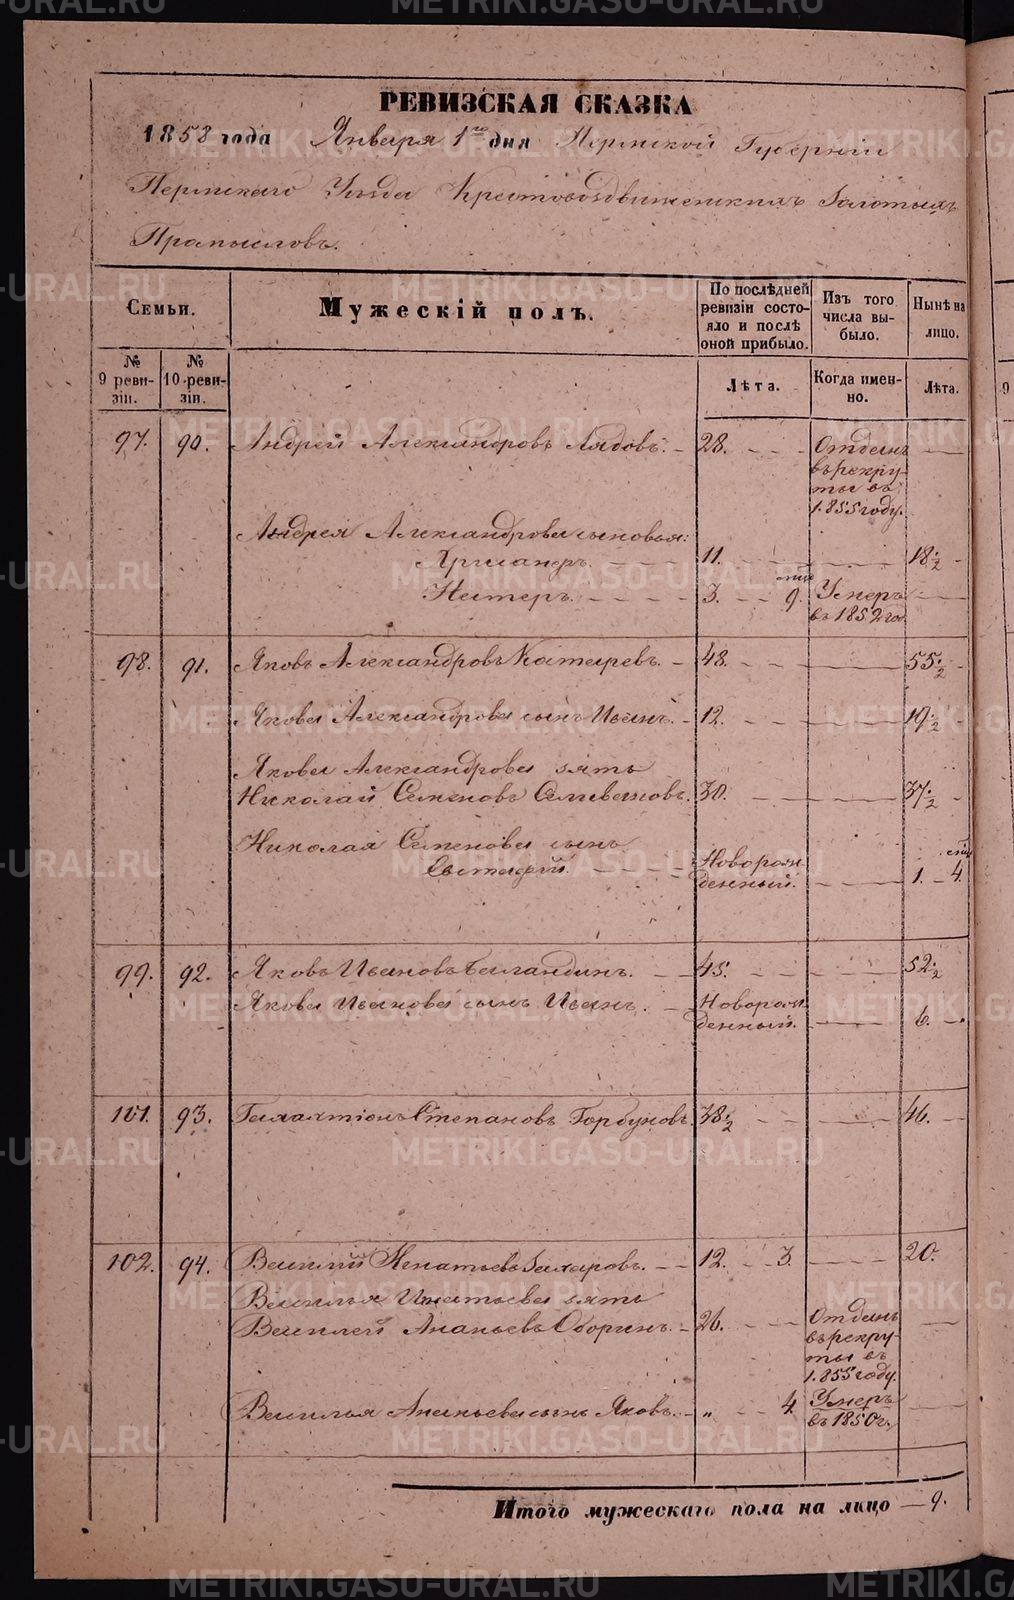 РЕВИЗСКАЯ СКАЗКА
1858 года Января 1го дня Пермской Губернiи
Пермскаго Уѣзда Крестовоздвиженскихъ Золотыхъ
Промысловъ.
Семьи. Мужескiй полъ. По послѣдней ревизiи состояло и послѣ оной прибыло. Изъ того числа выбыло. Нынѣ на лицо.
№ 9 ревизiи. № 10 ревизiи. Лѣта. Когда именно. Лѣта.
97. 90. Андрей Александровъ Лядовъ. 28. Отданъ въ рекруты въ 1855 году.
Андрея Александрова сыновья:
11. 18 1/2
Нестеръ. 3. 9. Умеръ въ 1852 го
98. 91. Яковъ Александровъ 48. 55 1/2
Якова Александрова сынъ Иванъ. 12. 19 1/2
Якова Александрова зять
Николай Семеновъ Селивановъ. 30. 37 1/2
Николая Семенова сынъ
Новорожденный. 1. 4.
99. 92. Яковъ Ивановъ Баландинъ. 45. 52 1/2
Якова Иванова сынъ Иванъ. Новорожденный. 6.
101. 93. Галактiонъ Степановъ Горбуновъ. 38 1/2 46.
102. 94. Василiй Игнатьевъ Захаровъ. 12. 3. 20.
Василья Игнатьева зять
Василей Ананьевъ Оборинъ. 26. Отданъ въ рекруты въ 1855 году.
Василья Ананьева сынъ Яковъ. „ 4 Умеръ въ 1850 г.
Итого мужескаго пола на лицо — 9.
METRIKI.GASO-URAL.RU